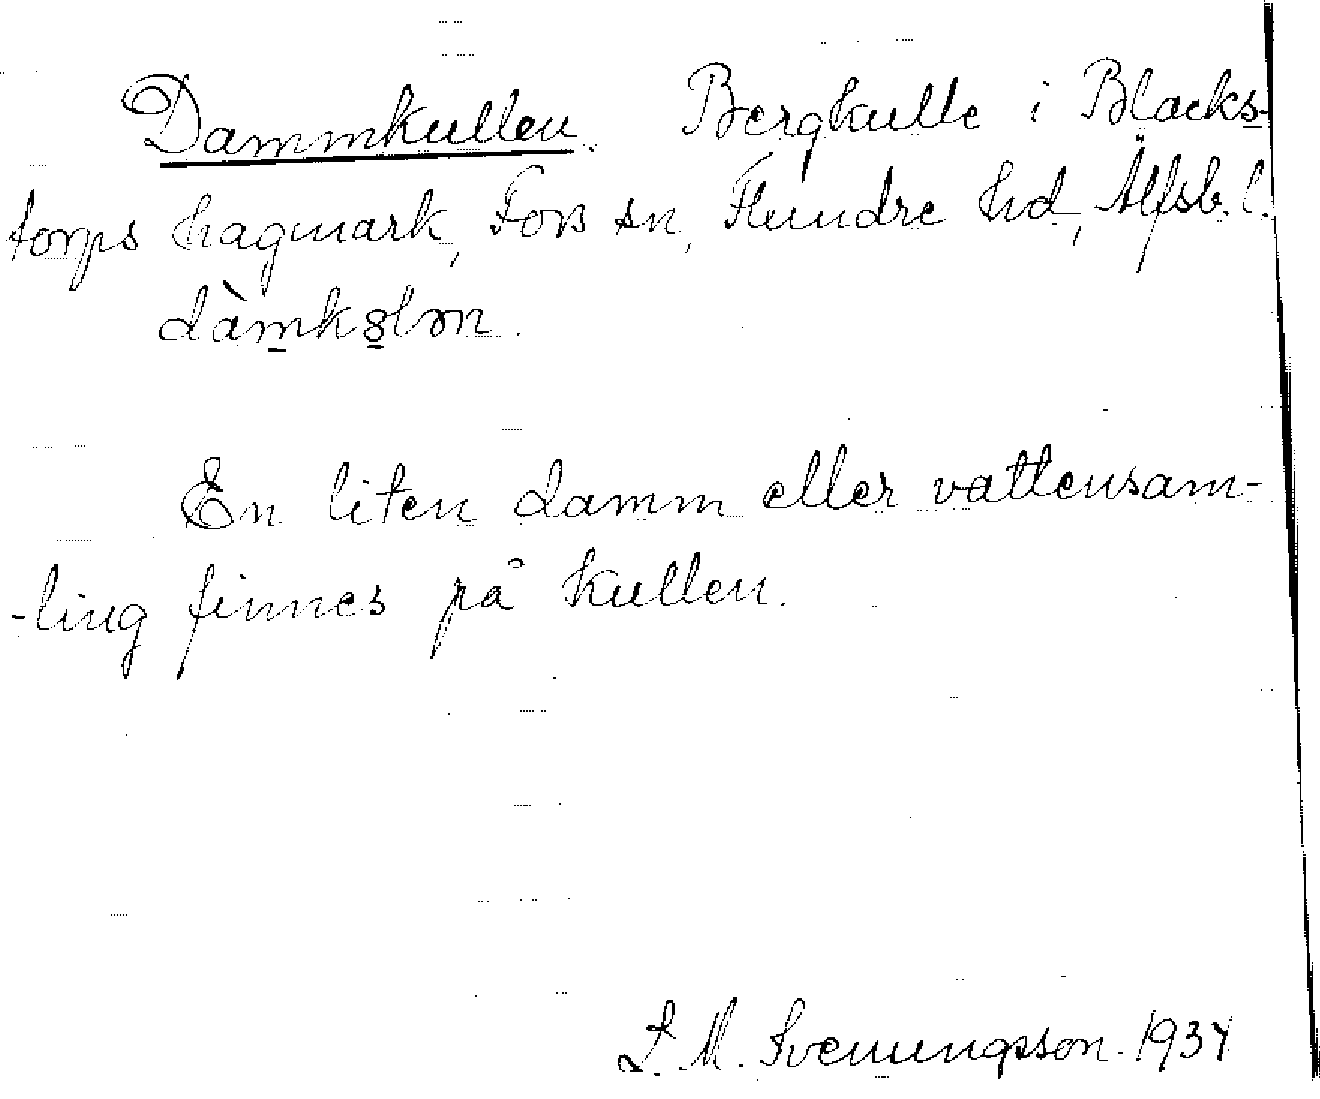 Dammkullen. Bergkulle i Blacks-
torps hagmark, Fors sn, Flundre hd, Älfsb. l.
dàmk8lən.
En liten damm eller vattensam-
-ling finnes på kullen.
S. M. Svenungsson. 1934